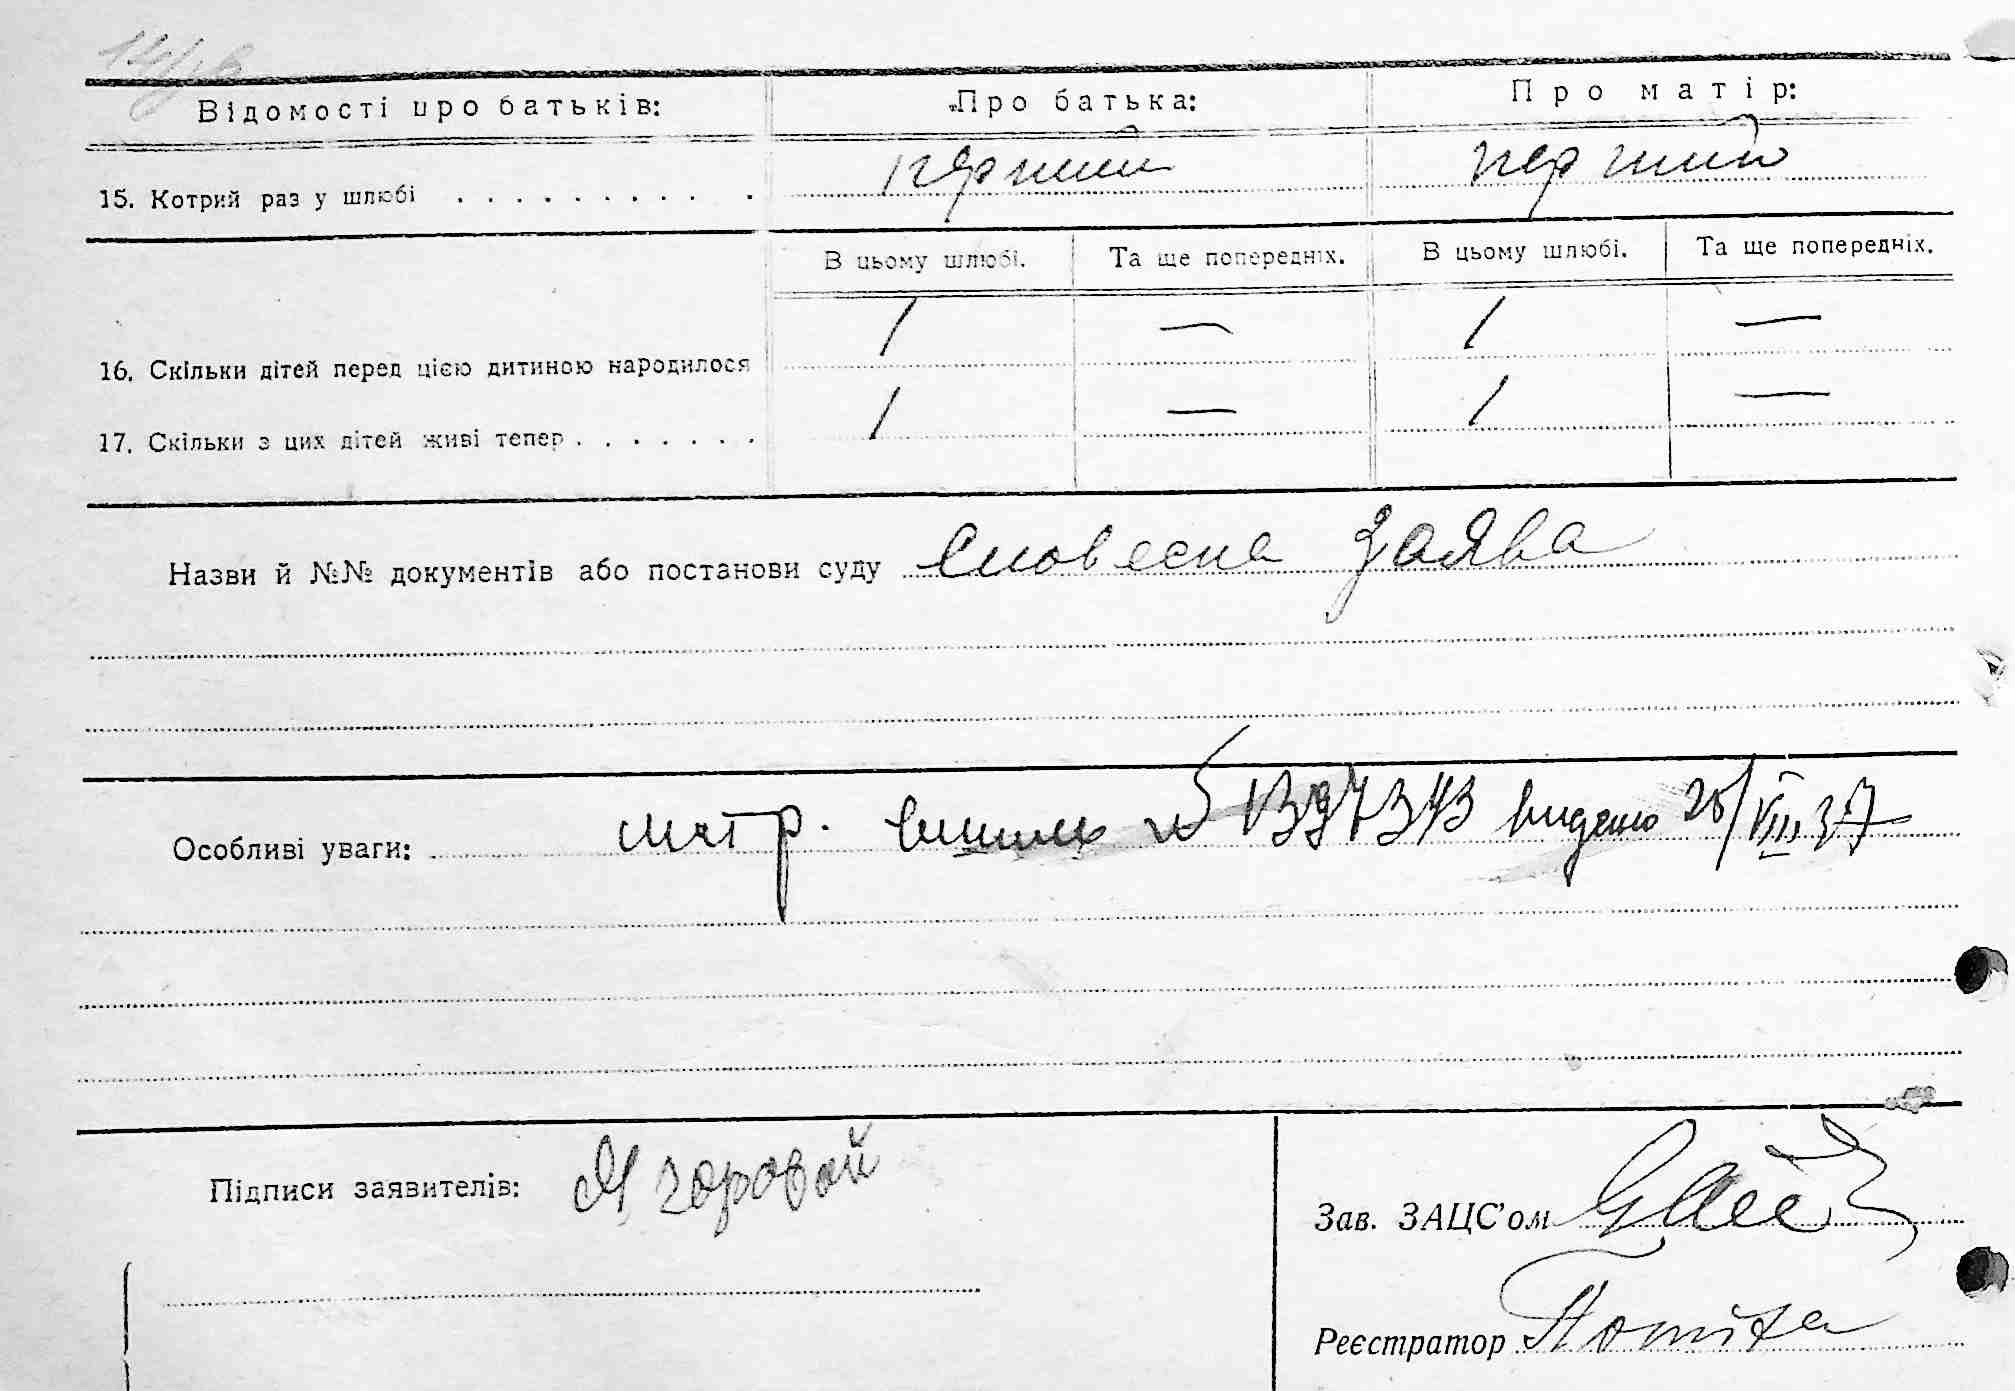 Відомості про батьків: Про батька: Про матір:
15. Котрий раз у шлюбі . . . . . . . . . . перший перший
В цьому шлюбі. Та ще попередніх. В цьому шлюбі. Та ще попередніх.
16. Скільки дітей перед цією дитиною народилося 1 — 1 —
17. Скільки з цих дітей живі тепер . . . . . . . 1 — 1 —
Назви й №№ документів або постанови суду Словесна Заява
Особливі уваги: метр. видано 26/VIII 37
Підписи заявителів: Ягоровой
Зав. ЗАЦС'ом
Реєстратор